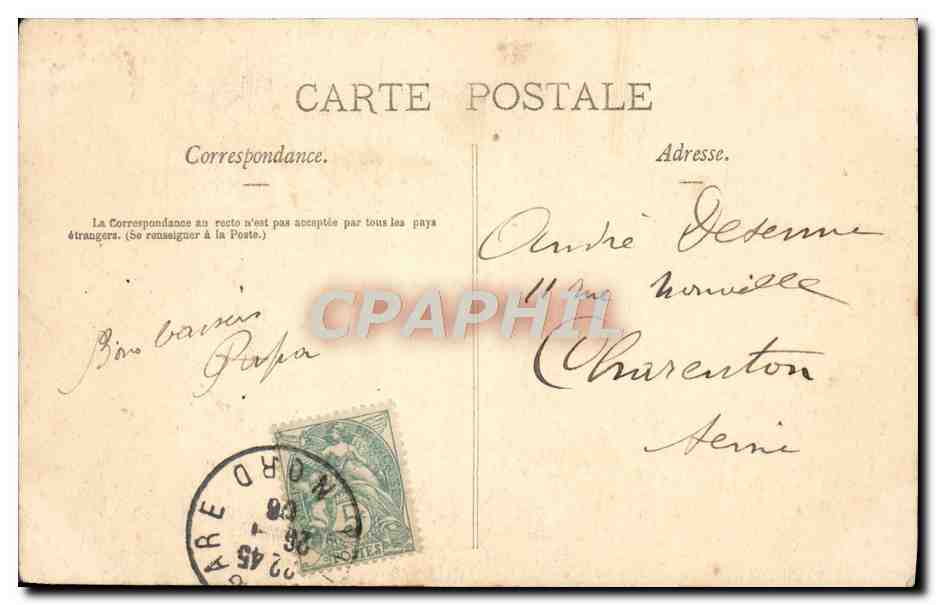 CARTE POSTALE
Correspondance.
La Correspondance au recto n'est pas acceptée par tous les pays
étrangers. (Se renseigner à la Poste.)
Bons baisers
Papa
Adresse.
André Desenne
11 rue
Charenton
Seine
CPAPHIL
GARE NORD
22 45
26 - 1
08
POSTES